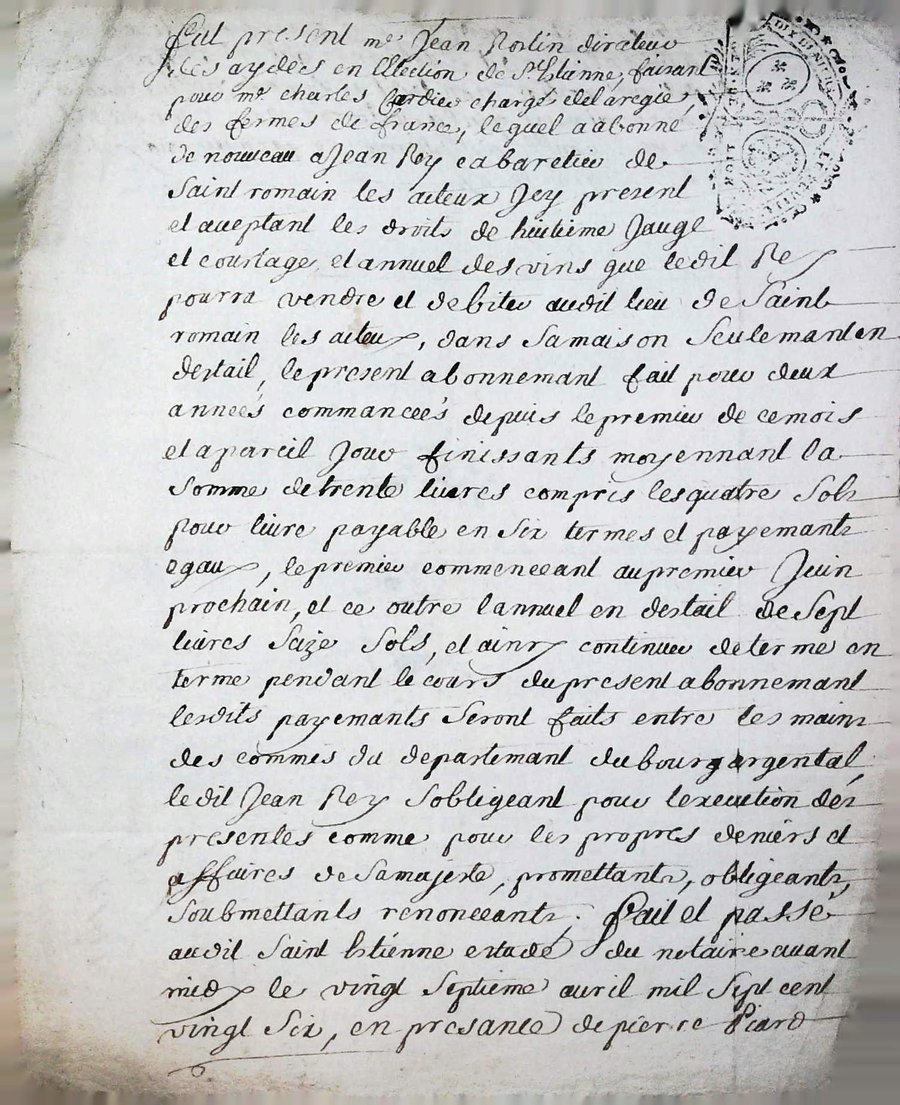 Fut present me Jean Rostin directeur
des aydes en Election de St Etienne, faisant
pour me charles Cordier chargé delaregie
des fermes de france, lequel aabonné
de nouveau a Jean Rey cabaretier de
Saint romain les ateux Icy present
et aceptant les droits de huitieme Jauge
et courtage et annuel des vins que ledit Rey
pourra vendre et debiter audit lieu de Saint
romain les ateux, dans Samaison Seulemant en
destail, le present abonnemant fait pour deux
années commancées depuis lepremier de cemois
et apareil Jour finissants moyennant la
Somme detrente livres compris lesquatre Sols
pour livre payable en Six termes et payemants
egaux, le premier commenceant aupremier Juin
prochain, et ce outre lannuel en destail de Sept
livres Saize Sols, et ainsy continuer determe en
terme pendant le cours dupresent abonnemant
lesdits payemants Seront faits entre les mains
des commis du departemant dubourgargental,
ledit Jean Rey Sobligeant pour lexecution des
presentes comme pour les propres deniers et
affaires de Samajesté, promettants, obligeants,
Soubmettants renonceants. Fait et passé
audit Saint Etienne estude du notaire avant
midy le vingt Septieme avril mil Sept cent
vingt Six, en presance de pierre Picard